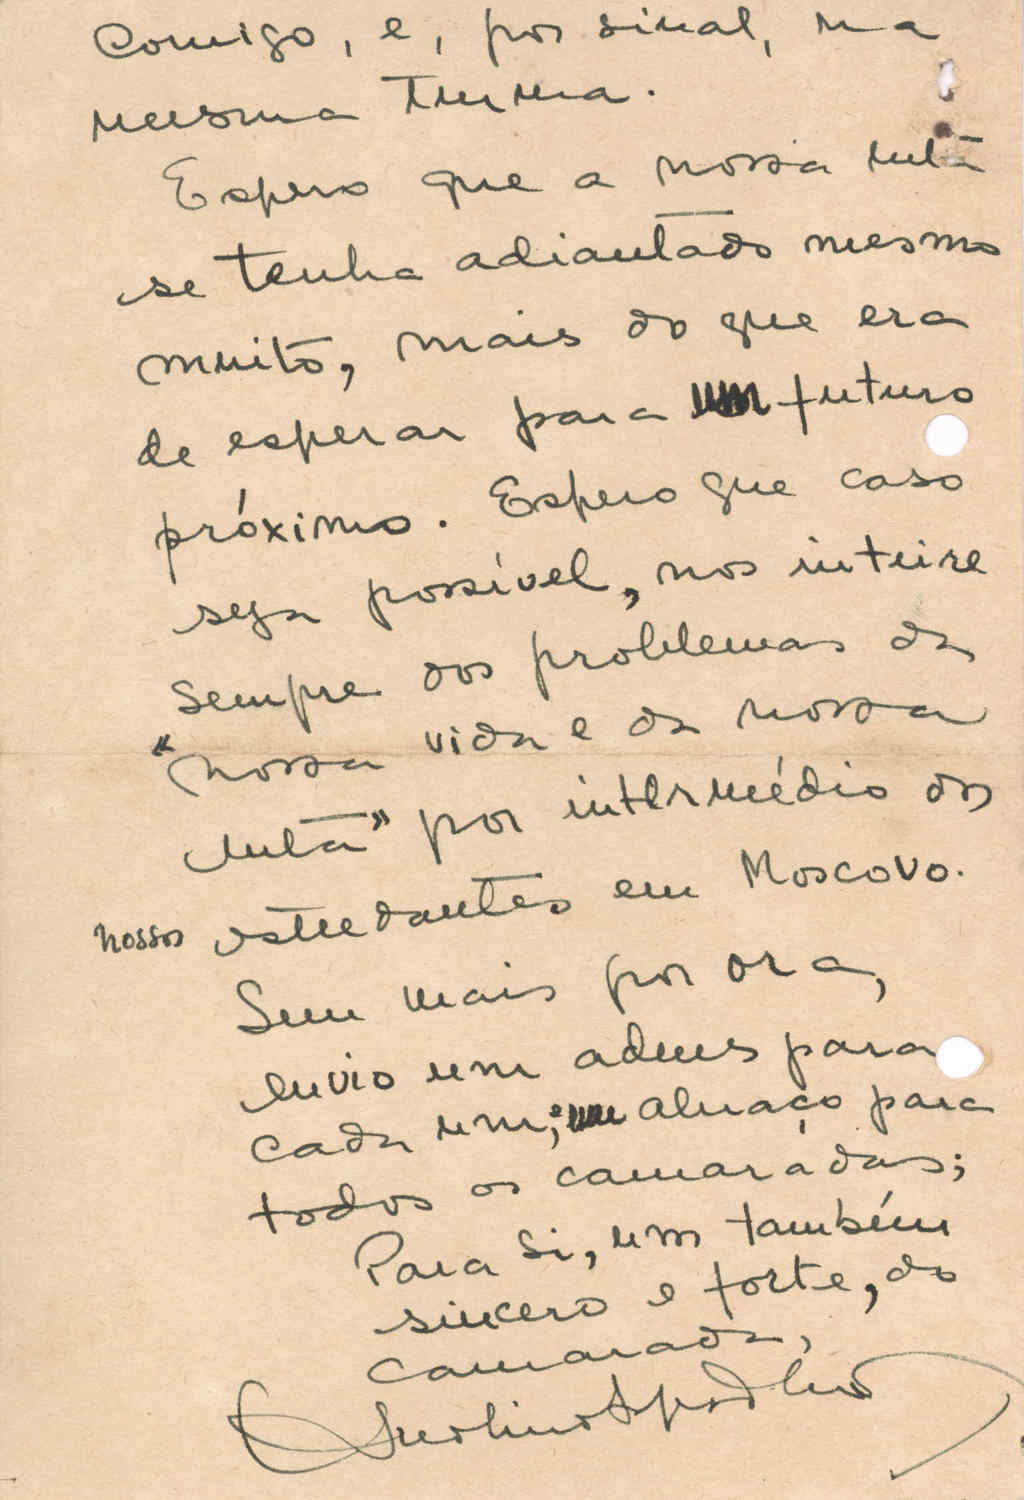 Comigo, e, por sinal, na
mesma turma.
Espero que a nossa luta
se tenha adiantado mesmo
muito, mais do que era
de esperar para um futuro
próximo. Espero que caso
seja possível, nos inteire
sempre dos problemas da
"nossa vida e da nossa
luta" por intermédio dos
nossos estudantes em Moscovo.
Sem mais por ora,
envio um adeus para
cada um; um abraço para
todos os camarádas;
Para si, um também
sincero e forte, do
camarada,